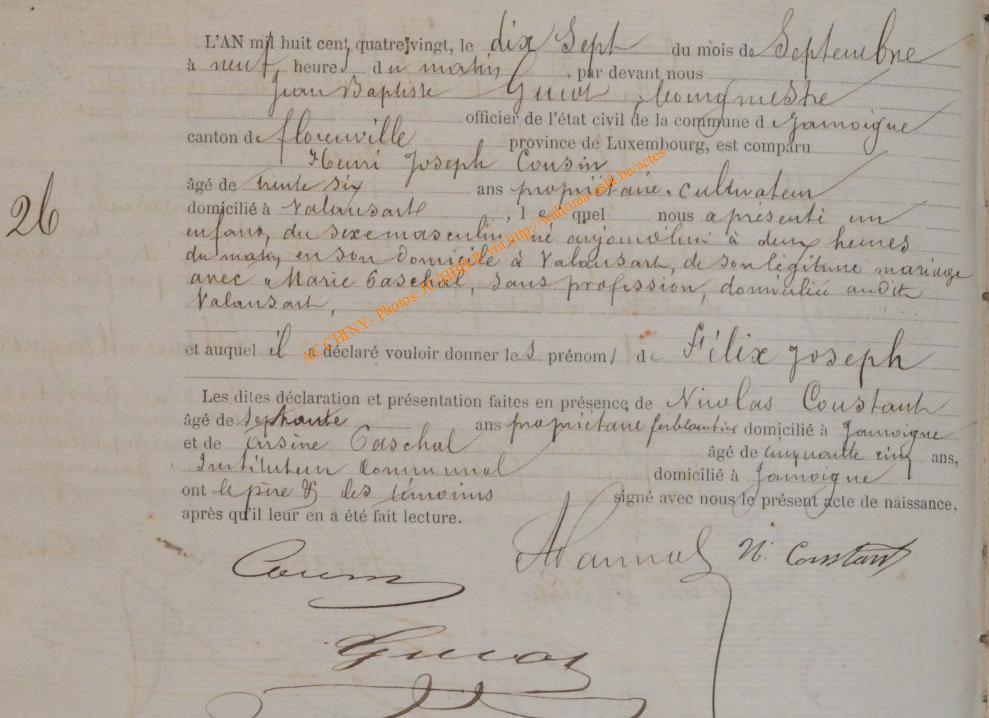 L'AN mil huit cent quatre-vingt, le dix Sept du mois de Septembre
à neuf heures du matin par devant nous
Jean Baptiste Guiot bourgmestre
officier de l'état civil de la commune de Jamoigne
canton de florenville province de Luxembourg, est comparu
Henri Joseph Cousin
âgé de trente six ans propriétaire-cultivateur
26
domicilié à Valansart, lequel nous a présenté un
enfant, du sexe masculin, né aujourd'hui à deux heures
du matin, en son domicile à Valansart, de son légitime mariage
avec Marie Paschal, Sans profession, domiciliée audit
Valansart,
AC CHINY - Photos: via http://wallonia.skt.be/actes
et auquel il a déclaré vouloir donner les prénoms de Félix Joseph
Les dites déclaration et présentation faites en présence de Nicolas Constant
âgé de Septante ans propriétaire ferblantier domicilié à Jamoigne
et de Arsène Paschal âgé de cinquante cinq ans,
Instituteur Communal domicilié à Jamoigne
ont le père & les témoins signé avec nous le présent acte de naissance,
après qu'il leur en a été fait lecture.
Cousin N. Constant
Guiot